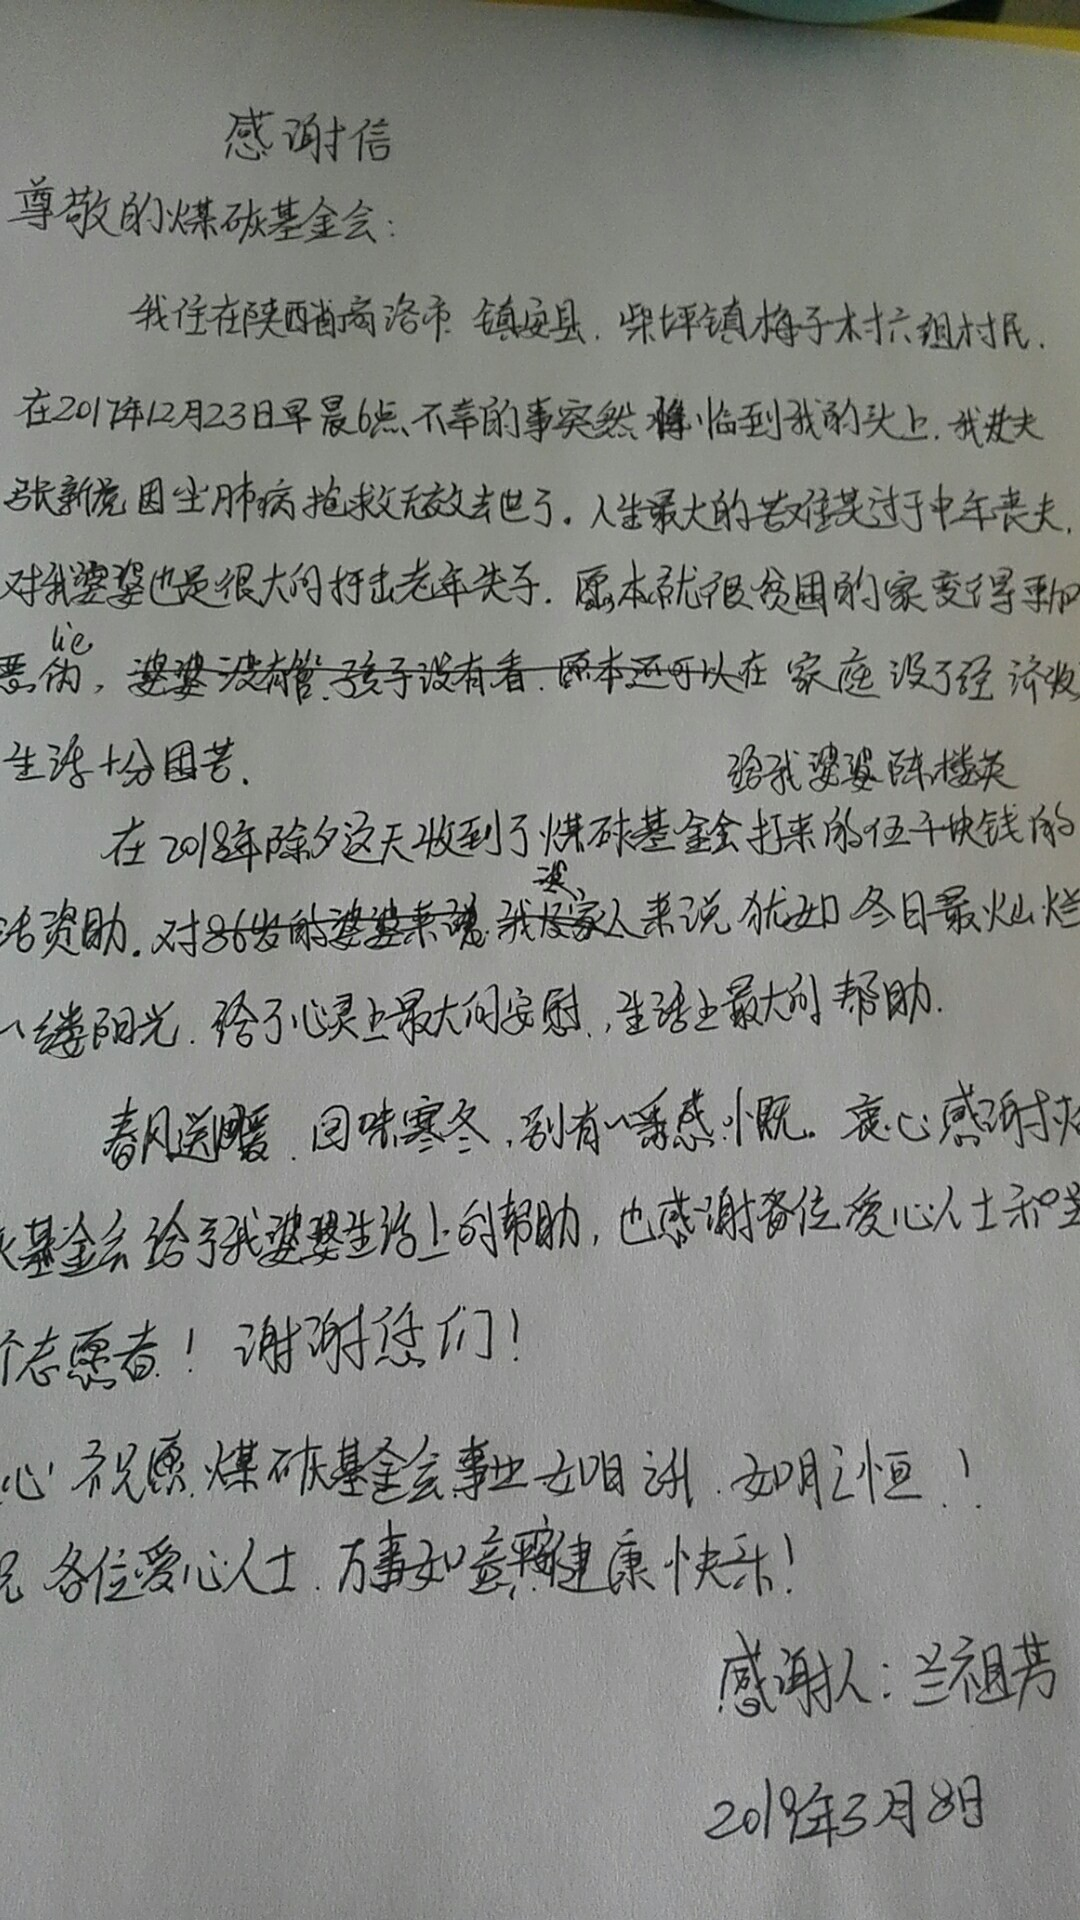 感谢信
尊敬的煤碳基金会:
我住在陕西省商洛市 镇安县. 柴坪镇梅子村六组村民.
在2017年12月23日早晨6点不幸的事突然 降临到我的头上. 我丈夫
张新党因尘肺病抢救无效去世了。人生最大的苦难莫过于中年丧夫,
对我婆婆也是很大的打击老年失子. 愿本就很贫困的家变得更加
lie
恶 , 婆婆没有管.孩子没有看.愿本还可以在 家庭没了经济收
生活十分困苦.
给我婆婆陈楼英
在2018年除夕这天收到了煤碳基金会打来的伍千块钱的
婆
活资助. 对86岁的婆婆来说 我及家人来说 犹如冬日最灿烂
一缕阳光. 给了心灵上最大的安慰,生活上最大的帮助.
春风送暖. 回味寒冬, 别有一番感慨。衷心感谢
基金会给予我婆婆生活上的帮助, 也感谢各位爱心人士和
个志愿者! 谢谢您们!
心 祝愿 煤碳基金会事业如日 . 如月之恒!
各位爱心人士. 万事如意平安健康快乐!
感谢人: 兰祖芳
2019年3月8日